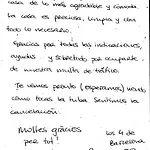 casa de lo más agradable y cómoda. La
casa es preciosa, limpia y con
todo lo necesario.
Gracias por todas las indicaciones,
ayudas y sobretodo por ocuparte
de nuestra multa de tráfico.
Te vemos pronto (esperamos) viendo
como todas la
cancelación.
Moltes gràcies
per tot!
los 4 de
Barcelona